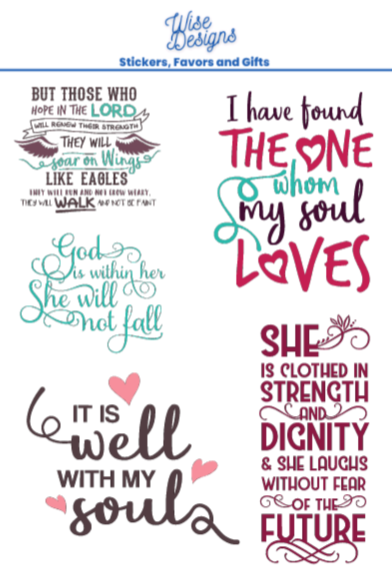 Wise
Designs
Stickers, Favors and Gifts
BUT THOSE WHO
HOPE IN THE LORD
WILL RENEW THEIR STRENGTH
THEY WILL
soar on Wings
LIKE EAGLES
THEY WILL RUN AND NOT GROW WEARY,
THEY WILL WALK AND NOT BE FAINT
I have found
THE ONE
whom
my soul
LOVES
God
is within her
She will
not fall
IT IS
well
WITH MY
soul
SHE
IS CLOTHED IN
STRENGTH
AND
DIGNITY
& SHE LAUGHS
WITHOUT FEAR
OF THE
FUTURE